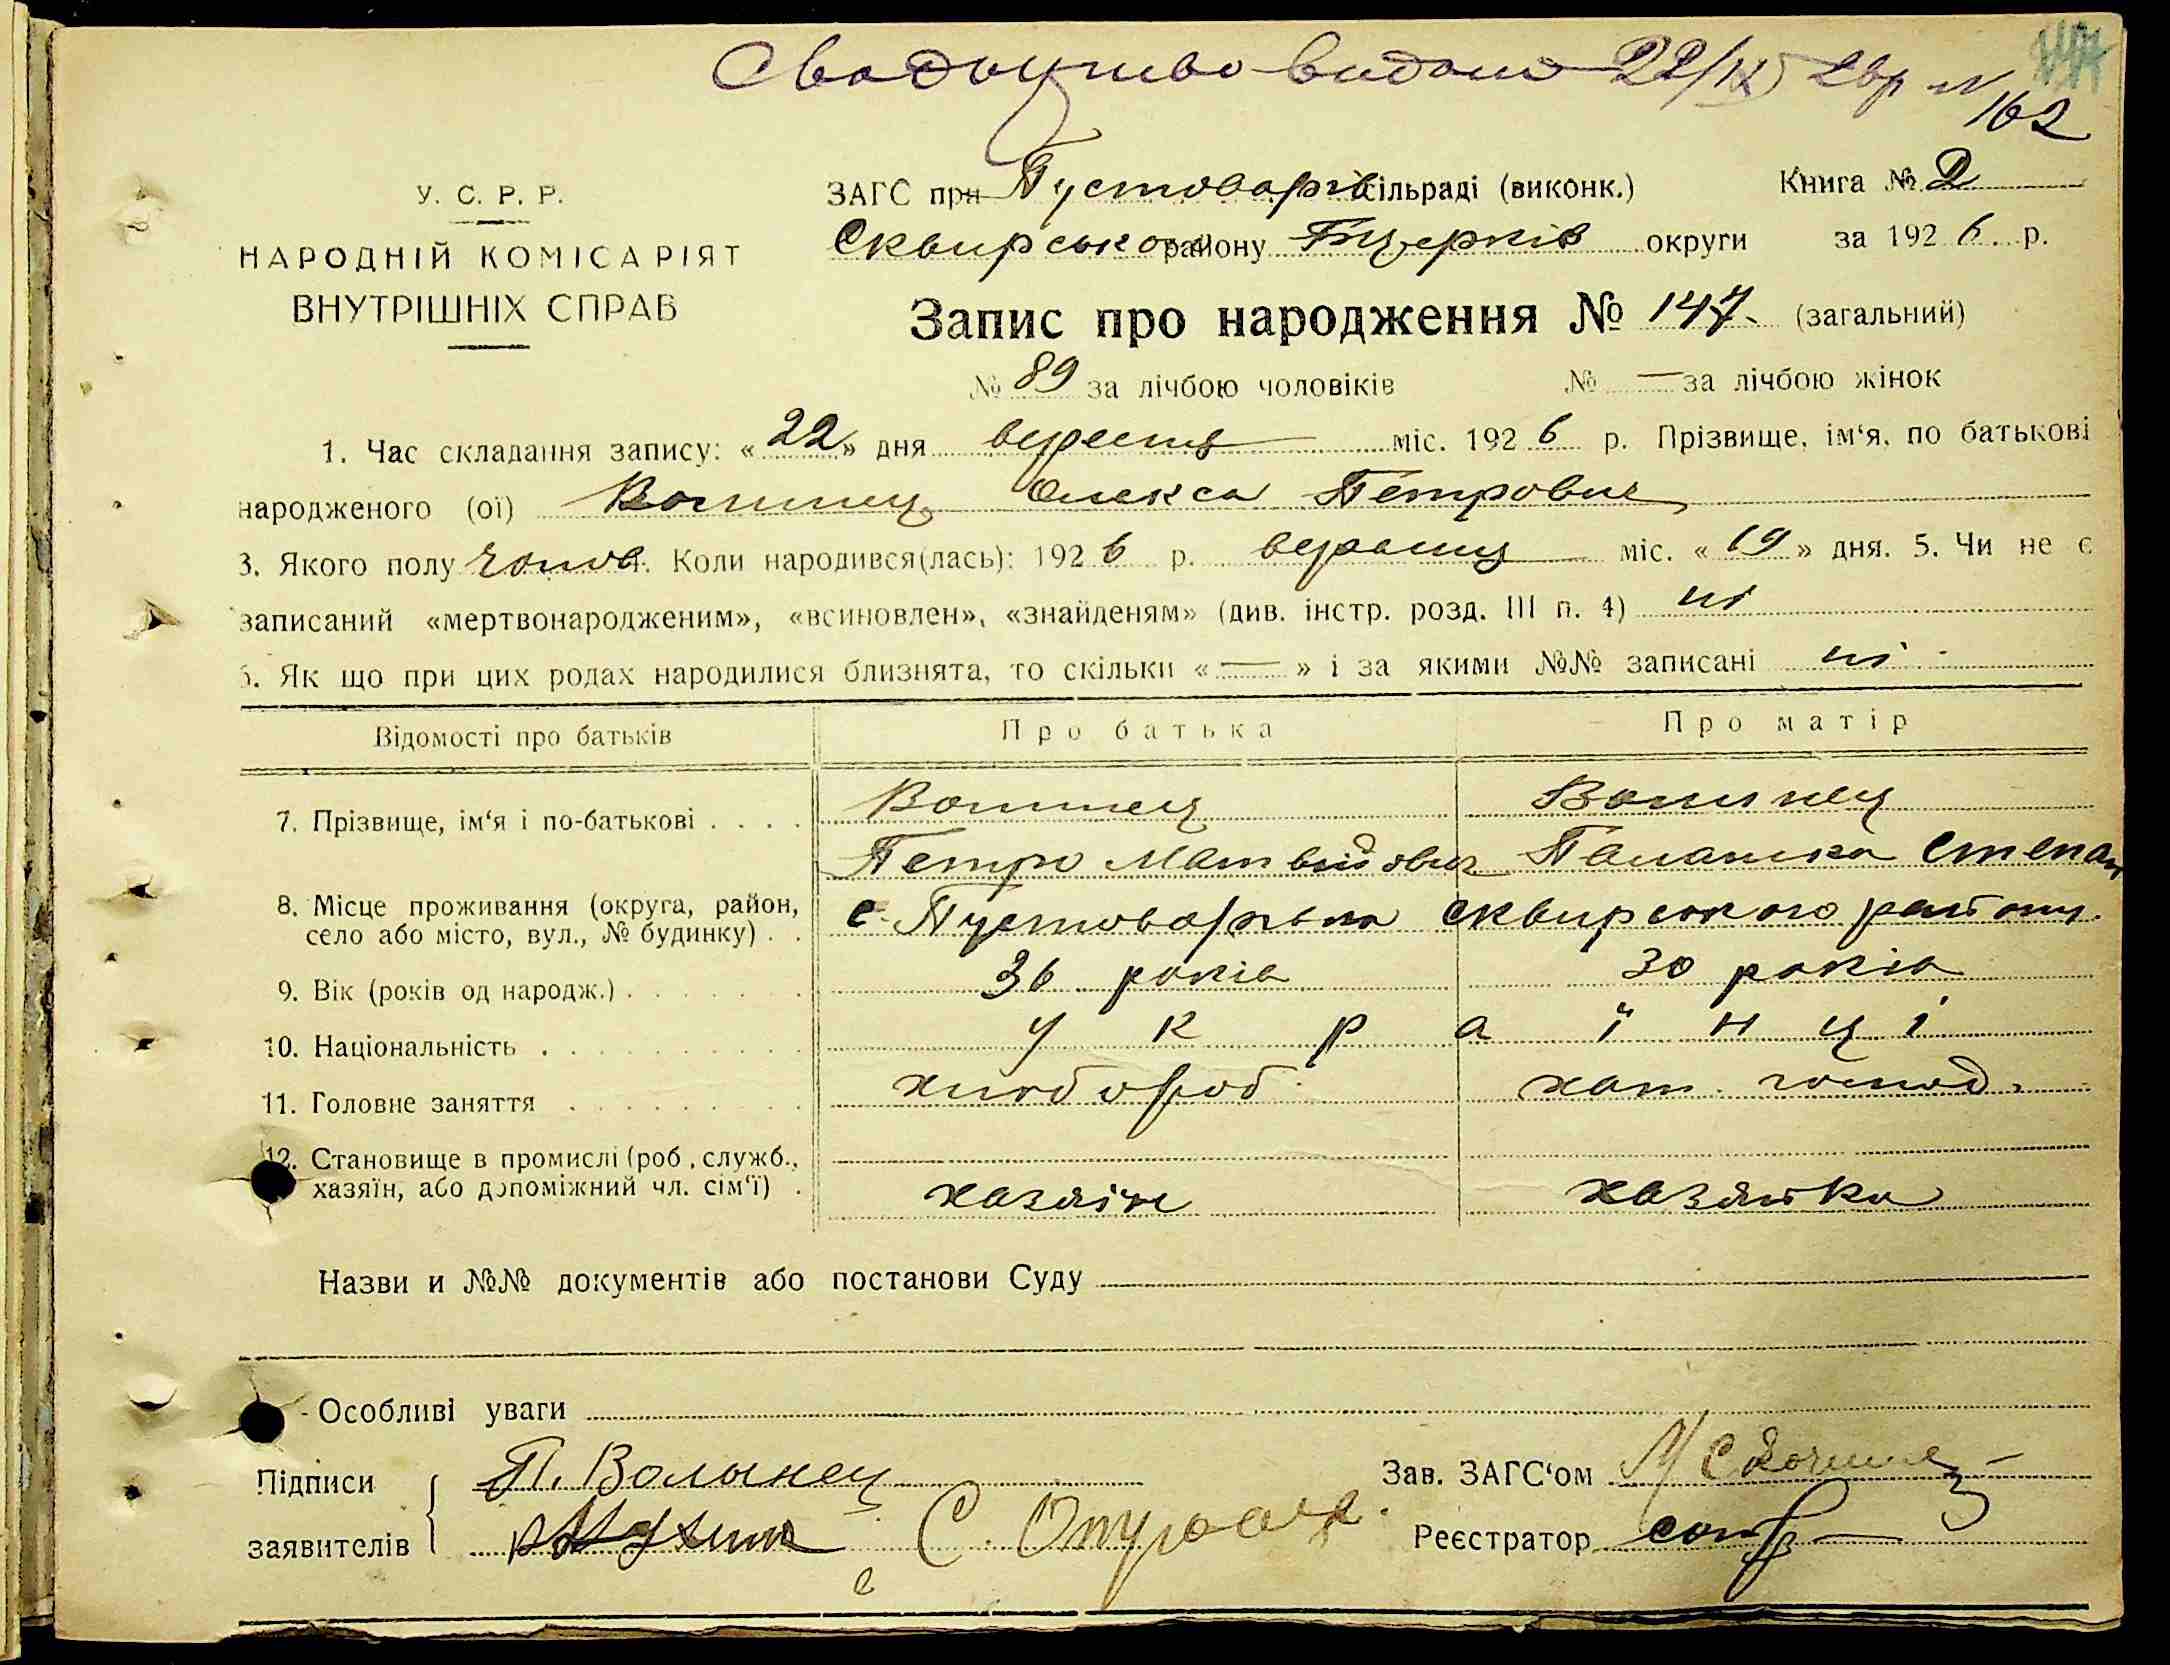 видано 22/IX 26р N
162
У. С. Р. Р.
НАРОДНІЙ КОМІСАРІЯТ
ВНУТРІШНІХ СПРАВ
ЗАГС при Пустоварів сільраді (виконк.) Книга № 2
Сквирського району Бцерків округи за 1926 р.
Запис про народження № 147. (загальний)
№ 89 за лічбою чоловіків № — за лічбою жінок
1. Час складання запису: «22» дня вересня міс. 1926 р. Прізвище, ім‘я, по батькові
народженого (ої) Волинец Олекса Петрович
3. Якого полу чолов. 4. Коли народився(лась): 1926 р. вересня міс. «19» дня. 5. Чи не є
записаний «мертвонародженим», «всиновлен», «знайденям» (див. інстр. розд. III п. 4) ні
6. Як що при цих родах народилися близнята, то скільки «—» і за якими №№ записані ні
Відомості про батьків Про батька Про матір
7. Прізвище, ім‘я і по-батькові . . . . Волинец Волинец
Петро Матвійович Палажка Степан
8. Місце проживання (округа, район,
село або місто, вул., № будинку) . . с. Пустоварівка Сквирського району.
9. Вік (років од народж.) . . . . . . . 36 років 30 років
10. Національність . . . . . . . . . . українці
11. Головне заняття . . . . . . . . . хлібороб хат. господ.
12. Становище в промислі (роб., служб.,
хазяїн, або допоміжний чл. сім‘ї) . хазяїн хазяйка
Назви и №№ документів або постанови Суду
Особливі уваги
Підписи П. Волынец Зав. ЗАГС‘ом
заявителів С. Реєстратор